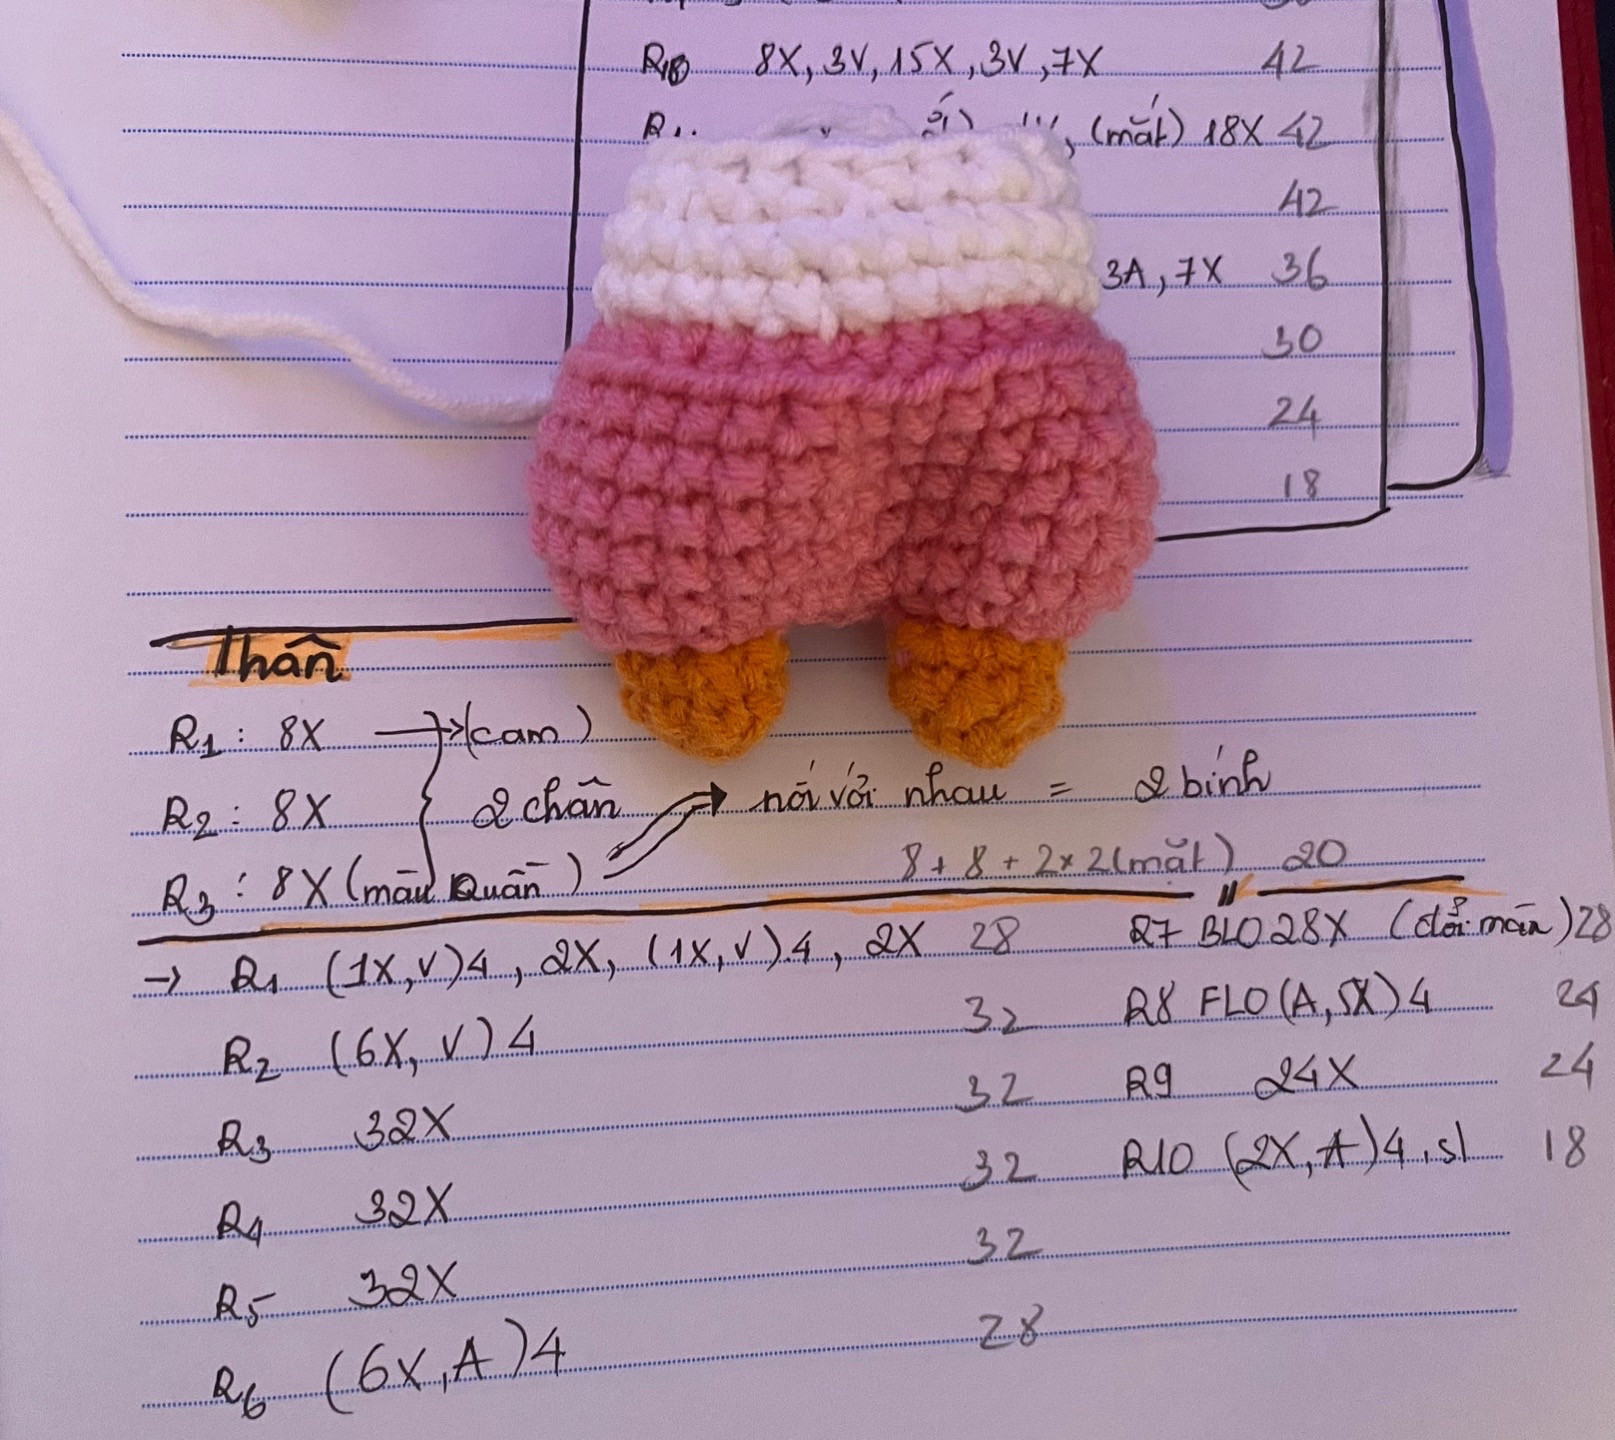 R10 8X, 3V, 15X, 3V, 7X 42
(mắt) 18X 42
42
3A, 7X 36
30
24
18
Thân
R1: 8X → (cam)
R2: 8X 2 chân → nối với nhau = 2 bính
R3: 8X (màu Quần) 8 + 8 + 2x2 (mặt) 20
→ R1 (1X, V)4, 2X, (1X, V)4, 2X 28
R2 (6X, V)4 32
R3 32X 32
R4 32X 32
R5 32X 32
R6 (6X, A)4 28
R7 BLO 28X (đổi màu) 28
R8 FLO (A, 5X)4 24
R9 24X 24
R10 (2X, A)4, sl 18